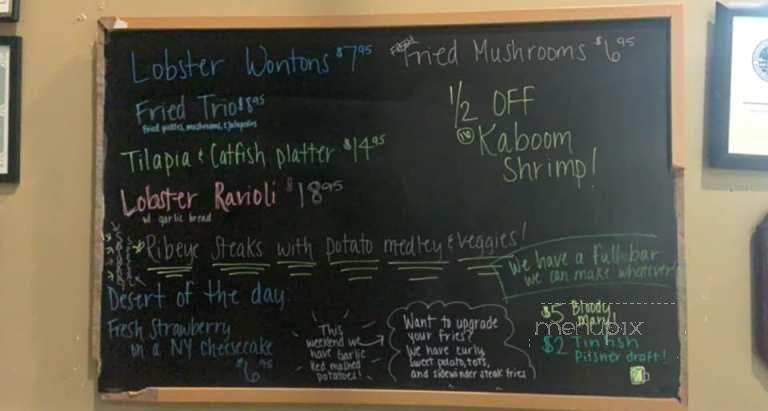 Lobster Wontons $7.95
Fresh Fried Mushrooms $6.95
Fried Trio $8.95
fried pickles, mushrooms, & jalapeños
1/2 OFF
Kaboom
Shrimp!
Tilapia & Catfish platter $14.95
Lobster Ravioli $18.95
w/ garlic bread
Ribeye Steaks with potato medley & veggies!
We have a full bar
we can make whatever!
Desert of the day:
Fresh Strawberry
on a NY Cheesecake
$6.95
This
weekend we
have Garlic
Red mashed
potatoes!
Want to upgrade
your fries?
We have curly,
sweet potato, tots,
and sidewinder steak fries
$5 Bloody
Mary!
$2 Tin fish
Pilsner draft!
menupix